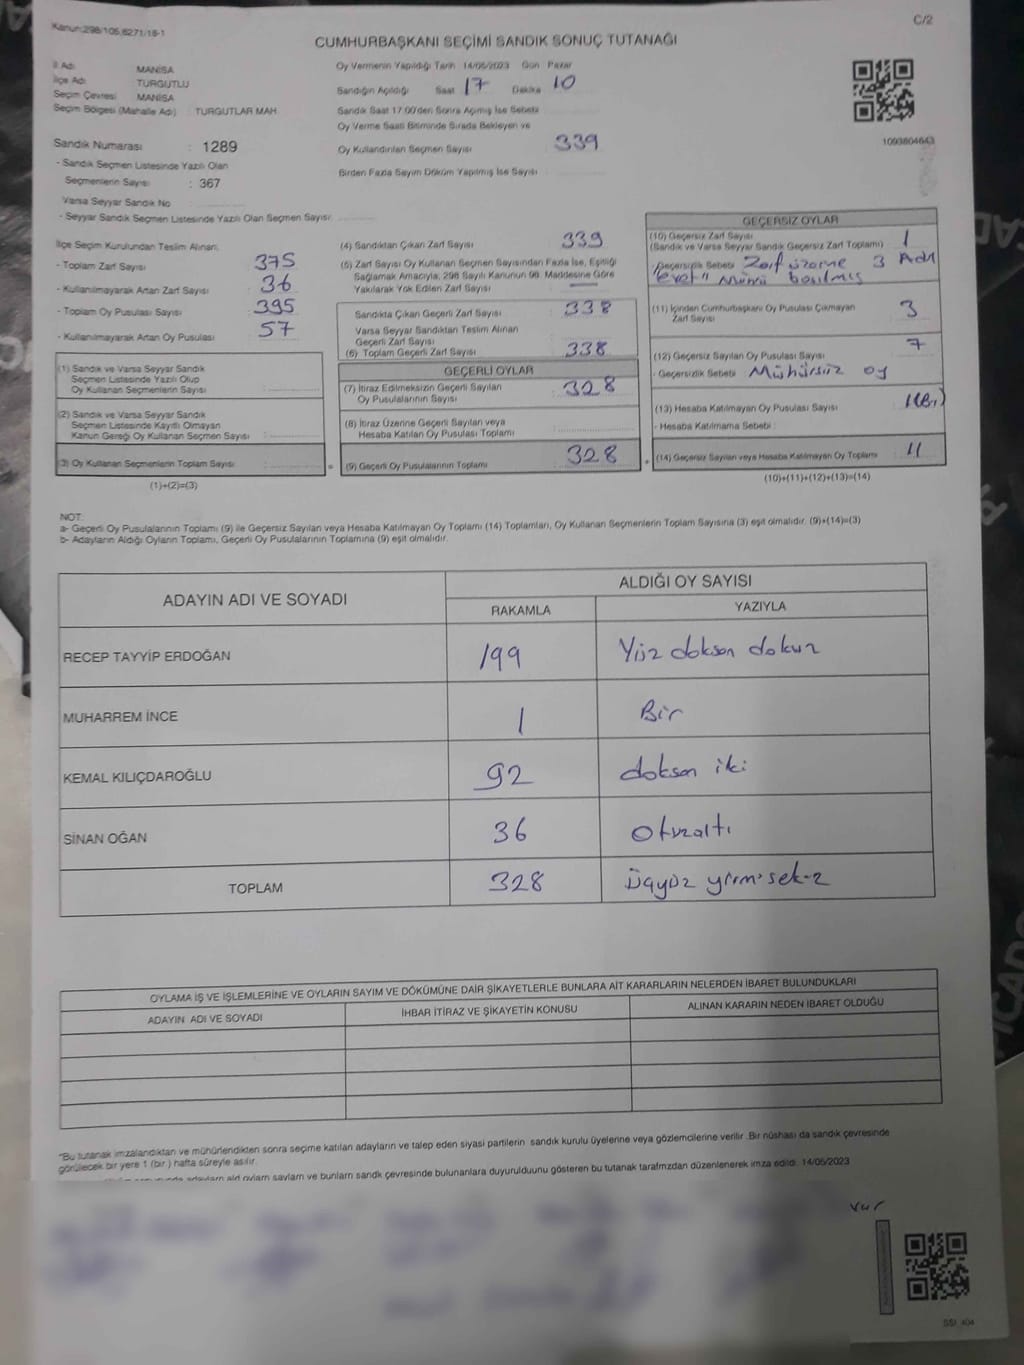 Kanun:298/105,6271/16-1
C/2
CUMHURBAŞKANI SEÇİMİ SANDIK SONUÇ TUTANAĞI
İl Adı MANİSA
İlçe Adı TURGUTLU
Seçim Çevresi MANİSA
Seçim Bölgesi (Mahalle Adı) : TURGUTLAR MAH.
Oy Vermenin Yapıldığı Tarih 14/05/2023 Gün Pazar
Sandığın Açıldığı Saat 17 Dakika 10
Sandık Saat 17:00'den Sonra Açılmış İse Sebebi
Oy Verme Saati Bitiminde Sırada Bekleyen ve
Oy Kullandırılan Seçmen Sayısı 339
Birden Fazla Sayım Döküm Yapılmış İse Sayısı
1093804643
Sandık Numarası : 1289
- Sandık Seçmen Listesinde Yazılı Olan
Seçmenlerin Sayısı : 367
Varsa Seyyar Sandık No
- Seyyar Sandık Seçmen Listesinde Yazılı Olan Seçmen Sayısı:
İlçe Seçim Kurulundan Teslim Alınan:
- Toplam Zarf Sayısı 375
- Kullanılmayarak Artan Zarf Sayısı : 36
- Toplam Oy Pusulası Sayısı : 395
- Kullanılmayarak Artan Oy Pusulası : 57
(1) Sandık ve Varsa Seyyar Sandık
Seçmen Listesinde Yazılı Olup
Oy Kullanan Seçmenlerin Sayısı
(2) Sandık ve Varsa Seyyar Sandık
Seçmen Listesinde Kayıtlı Olmayan
Kanun Gereği Oy Kullanan Seçmen Sayısı :
(3) Oy Kullanan Seçmenlerin Toplam Sayısı
(1)+(2)=(3)
(4) Sandıktan Çıkan Zarf Sayısı 339
(5) Zarf Sayısı Oy Kullanan Seçmen Sayısından Fazla İse, Eşitliği
Sağlamak Amacıyla, 298 Sayılı Kanunun 98. Maddesine Göre
Yakılarak Yok Edilen Zarf Sayısı —
Sandıkta Çıkan Geçerli Zarf Sayısı : 338
Varsa Seyyar Sandıktan Teslim Alınan
Geçerli Zarf Sayısı
(6) Toplam Geçerli Zarf Sayısı 338
GEÇERLİ OYLAR
(7) İtiraz Edilmeksizin Geçerli Sayılan
Oy Pusulalarının Sayısı 328
(8) İtiraz Üzerine Geçerli Sayılan veya
Hesaba Katılan Oy Pusulası Toplamı
(9) Geçerli Oy Pusulalarının Toplamı 328
GEÇERSİZ OYLAR
(10) Geçersiz Zarf Sayısı 1
(Sandık ve Varsa Seyyar Sandık Geçersiz Zarf Toplamı)
Geçersizlik Sebebi Zarf üzerine 3 Adet
"evet" Mührü basılmış
(11) İçinden Cumhurbaşkanı Oy Pusulası Çıkmayan
Zarf Sayısı 3
(12) Geçersiz Sayılan Oy Pusulası Sayısı 7
- Geçersizlik Sebebi Mühürsüz oy
(13) Hesaba Katılmayan Oy Pusulası Sayısı
- Hesaba Katılmama Sebebi :
(14) Geçersiz Sayılan veya Hesaba Katılmayan Oy Toplamı 11
(10)+(11)+(12)+(13)=(14)
NOT:
a- Geçerli Oy Pusulalarının Toplamı (9) ile Geçersiz Sayılan veya Hesaba Katılmayan Oy Toplamı (14) Toplamları, Oy Kullanan Seçmenlerin Toplam Sayısına (3) eşit olmalıdır. (9)+(14)=(3)
b- Adayların Aldığı Oyların Toplamı, Geçerli Oy Pusulalarının Toplamına (9) eşit olmalıdır.
ADAYIN ADI VE SOYADI ALDIĞI OY SAYISI
RAKAMLA YAZIYLA
RECEP TAYYİP ERDOĞAN 199 Yüz doksan dokuz
MUHARREM İNCE 1 Bir
KEMAL KILIÇDAROĞLU 92 doksan iki
SİNAN OĞAN 36 Otuzaltı
TOPLAM 328 Üçyüz yirmi sekiz
OYLAMA İŞ VE İŞLEMLERİNE VE OYLARIN SAYIM VE DÖKÜMÜNE DAİR ŞİKAYETLERLE BUNLARA AİT KARARLARIN NELERDEN İBARET BULUNDUKLARI
ADAYIN ADI VE SOYADI İHBAR İTİRAZ VE ŞİKAYETİN KONUSU ALINAN KARARIN NEDEN İBARET OLDUĞU
"Bu tutanak imzalandıktan ve mühürlendikten sonra seçime katılan adayların ve talep eden siyasi partilerin sandık kurulu üyelerine veya gözlemcilerine verilir. Bir nüshası da sandık çevresinde
görülecek bir yere 1 (bir) hafta süreyle asılır.
adayların ald oyların sayıların ve bunların sandk çevresinde bulunanlara duyurulduunu gösteren bu tutanak tarafmzdan düzenlenerek imza edildi. 14/05/2023
SSI_404